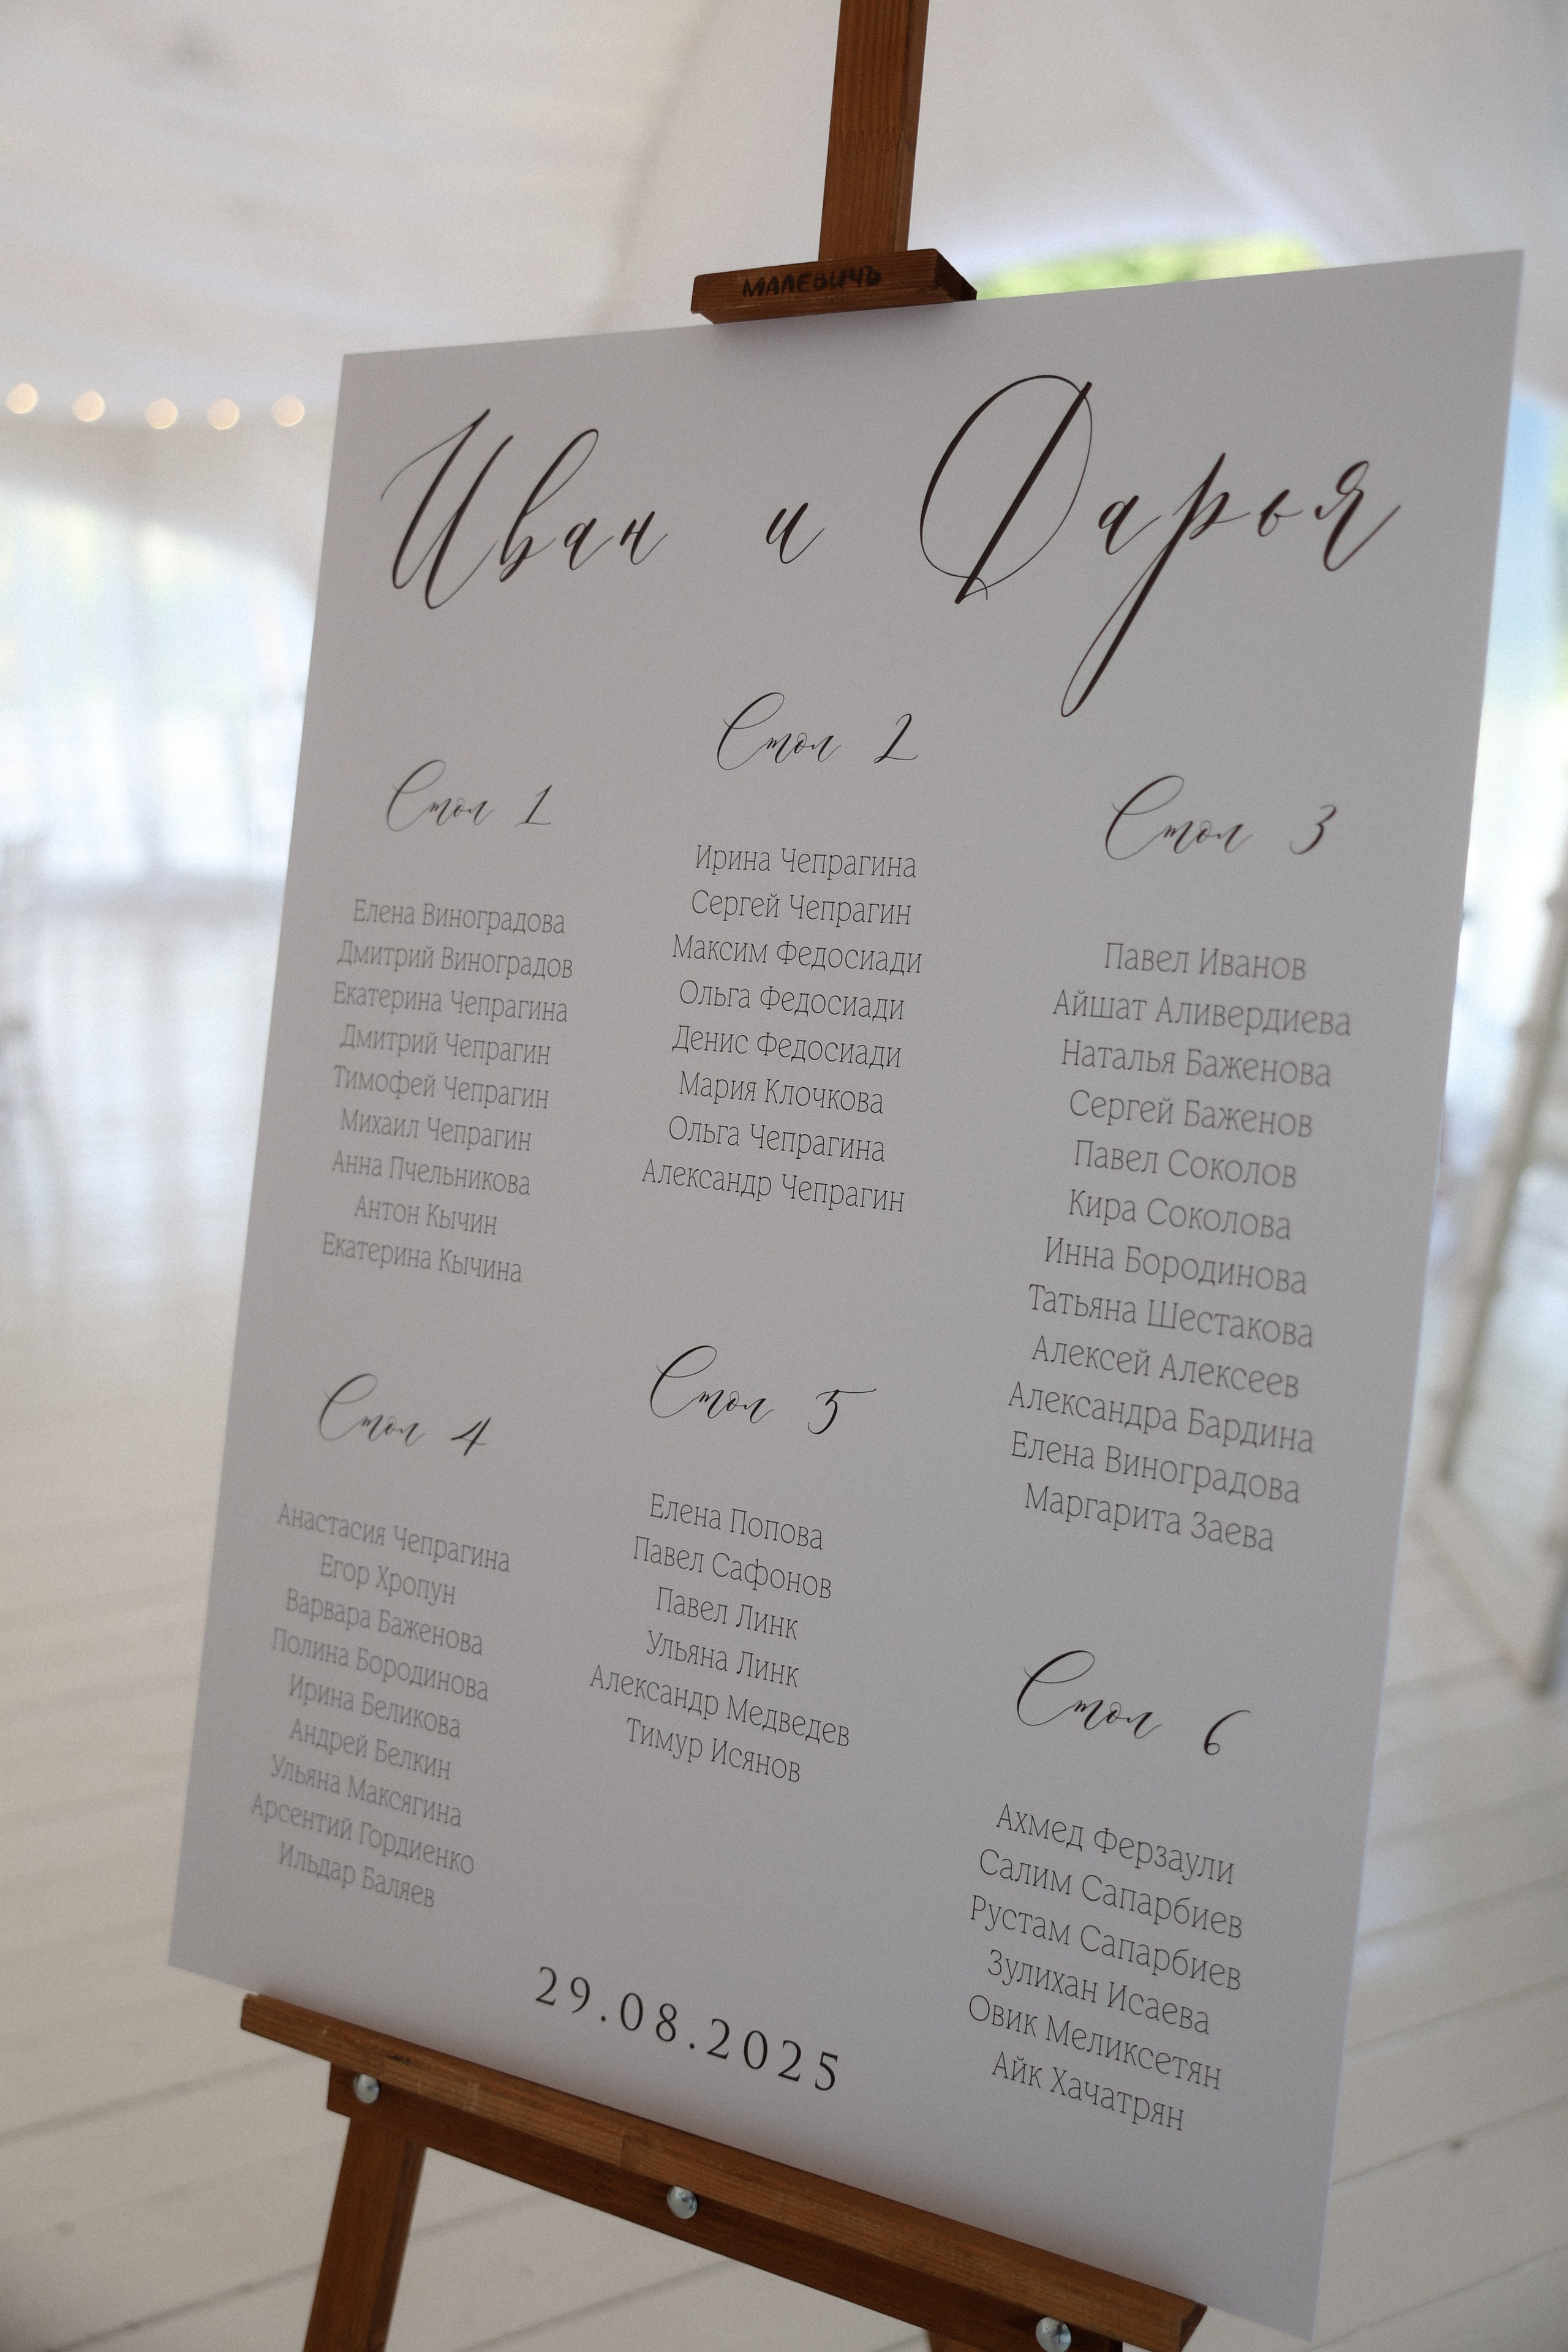 МАЛЕВИЧЪ
Иван и Дарья
Стол 1
Елена Виноградова
Дмитрий Виноградов
Екатерина Чепрагина
Дмитрий Чепрагин
Тимофей Чепрагин
Михаил Чепрагин
Анна Пчельникова
Антон Кычин
Екатерина Кычина
Стол 2
Ирина Чепрагина
Сергей Чепрагин
Максим Федосиади
Ольга Федосиади
Денис Федосиади
Мария Клочкова
Ольга Чепрагина
Александр Чепрагин
Стол 3
Павел Иванов
Айшат Аливердиева
Наталья Баженова
Сергей Баженов
Павел Соколов
Кира Соколова
Инна Бородинова
Татьяна Шестакова
Алексей Алексеев
Александра Бардина
Елена Виноградова
Маргарита Заева
Стол 4
Анастасия Чепрагина
Егор Хропун
Варвара Баженова
Полина Бородинова
Ирина Беликова
Андрей Белкин
Ульяна Максягина
Арсентий Гордиенко
Ильдар Баляев
Стол 5
Елена Попова
Павел Сафонов
Павел Линк
Ульяна Линк
Александр Медведев
Тимур Исянов
Стол 6
Ахмед Ферзаули
Салим Сапарбиев
Рустам Сапарбиев
Зулихан Исаева
Овик Меликсетян
Айк Хачатрян
29.08.2025